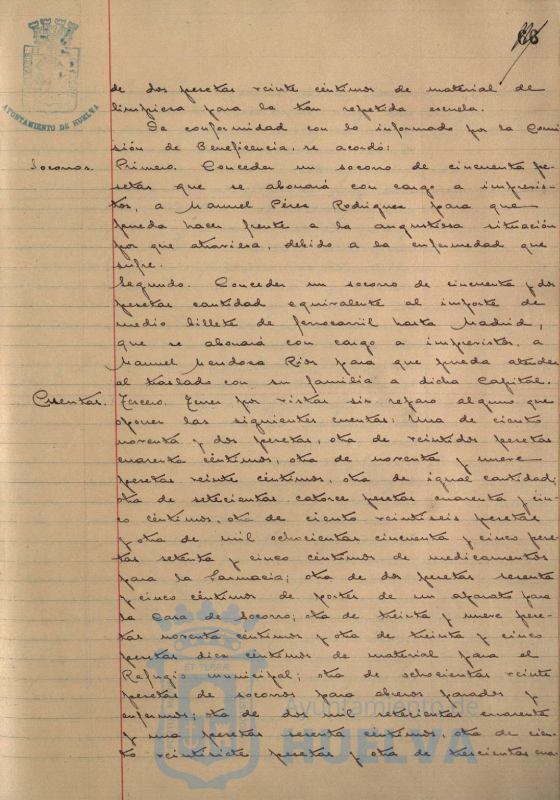 AYUNTAMIENTO DE HUELVA
de dos pesetas veinte céntimos de material de
limpiesa para la tan repetida escuela.
De conformidad con lo informado por la Comi
sión de Beneficencia, se acordó:
Socorros. Primero. Conceder un socorro de cincuenta pe-
setas que se abonará con cargo a imprevis-
tos, a Manuel Pérez Rodriguez para que
pueda hacer frente a la angustiosa situación
por que atraviesa, debido a la enfermedad que
sufre.
Segundo. Conceder un socorro de cincuenta y dos
pesetas cantidad equivalente al importe de
medio billete de ferrocarril hasta Madrid,
que se abonará con cargo a imprevistos, a
Manuel Mendoza Rios para que pueda atender
al traslado con su familia a dicha Capital.
Cuentas. Tercero. Tener por vistas sin reparo alguno que
oponer las siguientes cuentas: Una de ciento
noventa y dos pesetas, otra de veintidos pesetas
cuarenta céntimos, otra de noventa y nueve
pesetas veinte céntimos, otra de igual cantidad;
otra de setecientas catorce pesetas cuarenta y cin-
co céntimos, otra de ciento veintiseis pesetas
y otra de mil ochocientas cincuenta y cinco pese-
tas setenta y cinco céntimos de medicamentos
para la Farmacia; otra de dos pesetas sesenta
y cinco céntimos de portes de un aparato para
la Casa de Socorro; otra de treinta y nueve pese-
tas noventa céntimos y otra de treinta y cinco
pesetas diez céntimos de material para el
Refugio municipal; otra de ochocientas veinte
pesetas de socorros para obreros parados y
enfermos; otra de dos mil setecientas cuarenta
y una pesetas sesenta céntimos, otra de cien-
to veintisiete pesetas y otra de trescientas cua
ET TERRÆ
Ayuntamiento de
HUELVA